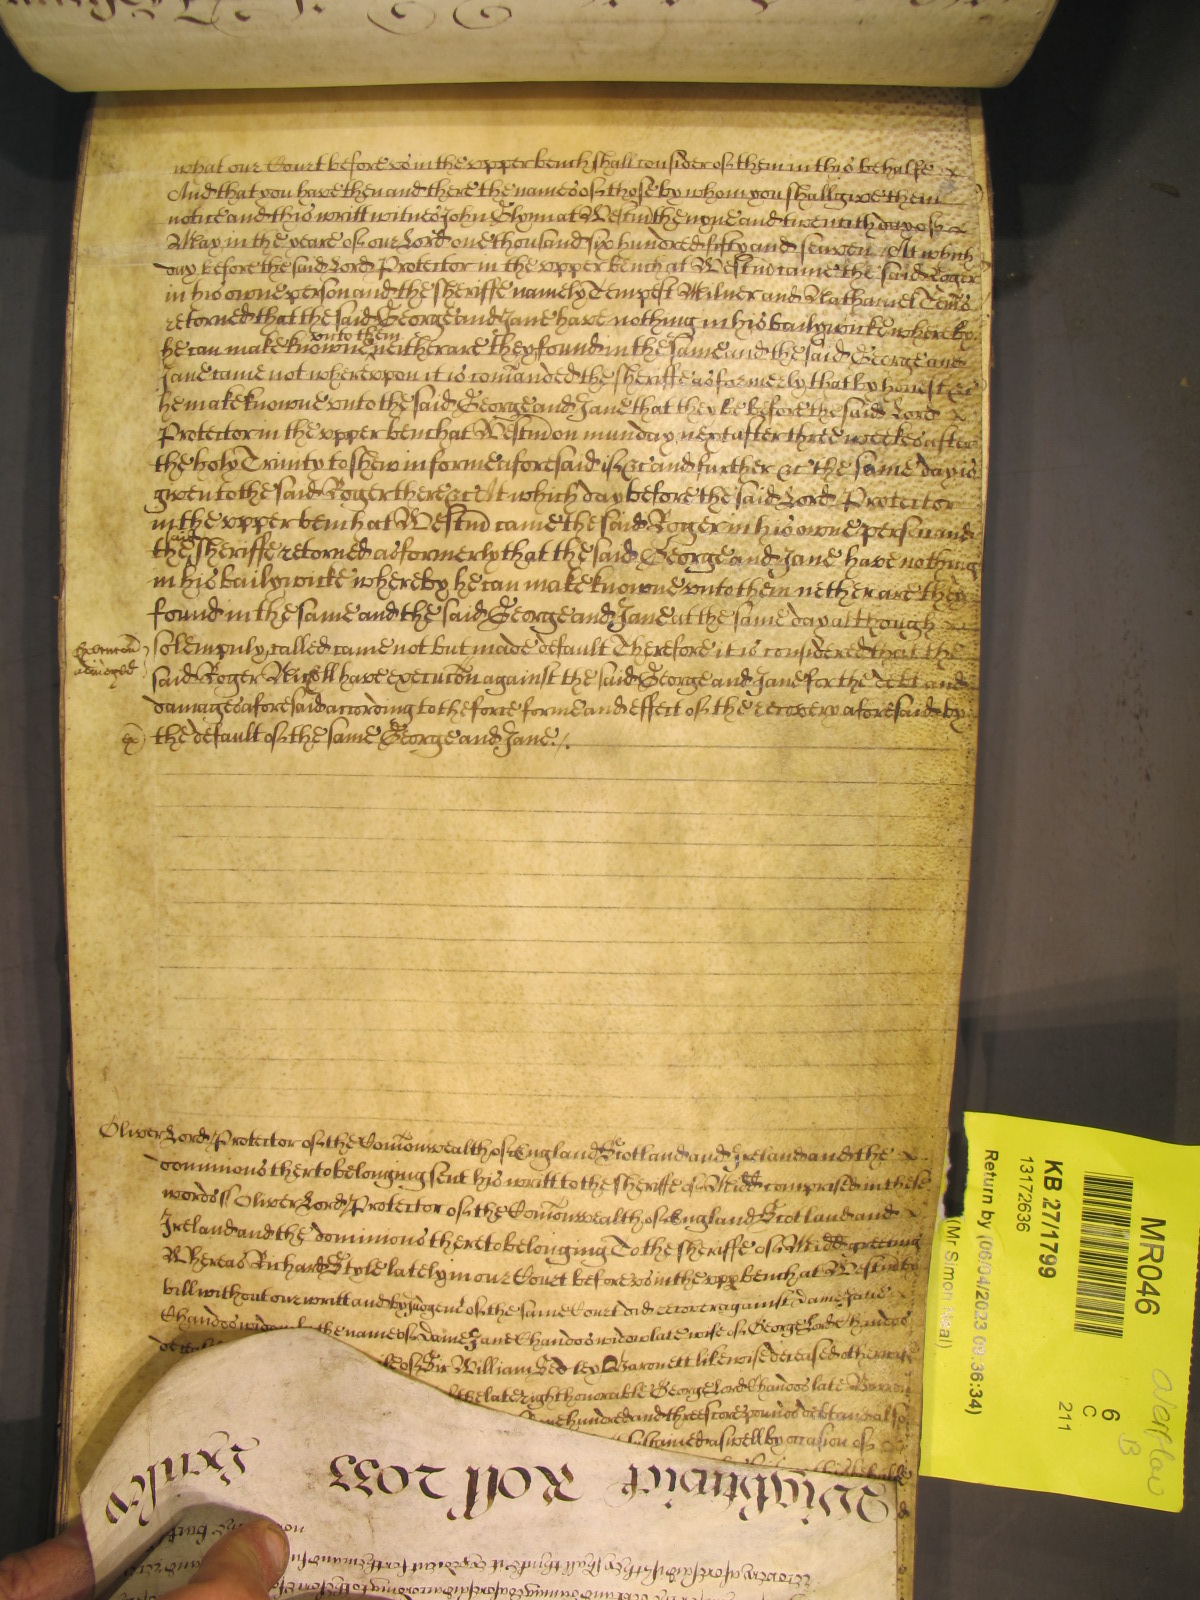 what our Court before us in the upper bench shall consider of them in this behalfe
And that you have then and there the names of those by whom you shall give them
notice and this writt witnes John Glynn at Westm the nyne and twentith day of
May in the yeare of our Lord one thousand six hundred fifty and seaven At which
day before the said Lord Protector in the upper bench at Westm came the said Roger
in his owne person and the sheriffe namely Tempest Milner and Nathaniel Tems
retorned that the said George and Jane have nothing in his bailywicke whereby
he can make knowne unto them neither are they found in the same and the said George and
Jane came not whereupon it is comanded the sheriffe as formerly that by honest &c
he make knowne unto the said George and Jane that they be before the said Lord
Protector in the upper bench at Westm on munday next after three weekes after
the holy Trinity to shew in forme aforesaid if &c and further &c the same day is
given to the said Roger there &c At which day before the said Lord Protector
in the upper bench at Westm came the said Roger in his owne person and
the said sheriffe retorned as formerly that the said George and Jane have nothing
in his bailywicke whereby he can make knowne unto them nether are they
found in the same and the said George and Jane at the same day although
solempnly called came not but made default Therefore it is considered that the
said Roger have execucon against the said George and Jane for the debt and
damages aforesaid according to the force forme and effect of the recovery aforesaid by
the default of the same George and Jane
Oliver Lord Protector of the Comonwealth of England Scotland and Ireland and the
dominions therto belonging sent his writt to the sheriffe of Midd comprised in these
words ss Oliver Lord Protector of the Comonwealth of England Scotland and
Ireland and the dominions thereto belonging To the sheriffe of Midd greeting
Whereas Richard Style lately in our Court before us in the upp bench at Westm by
bill without our writt and by Judgent of the same Court did recover against Dame Jane
Chandos widow by the name of Dame Jane Chandos widow late wife of George Lord Chandos
of Sir William Sedley Baronett likewise deceased otherwise
the late right honorable George Lord Chandos late Barron
hundred and threescore pounds debt and also
sustained aswell by occasion of
Wightwick Roll 2033
MR046
KB 27/1799
13172636
Return by (06/04/2023 09:36:34)
(Mr Simon Neal)
6
C
211
overflow
B